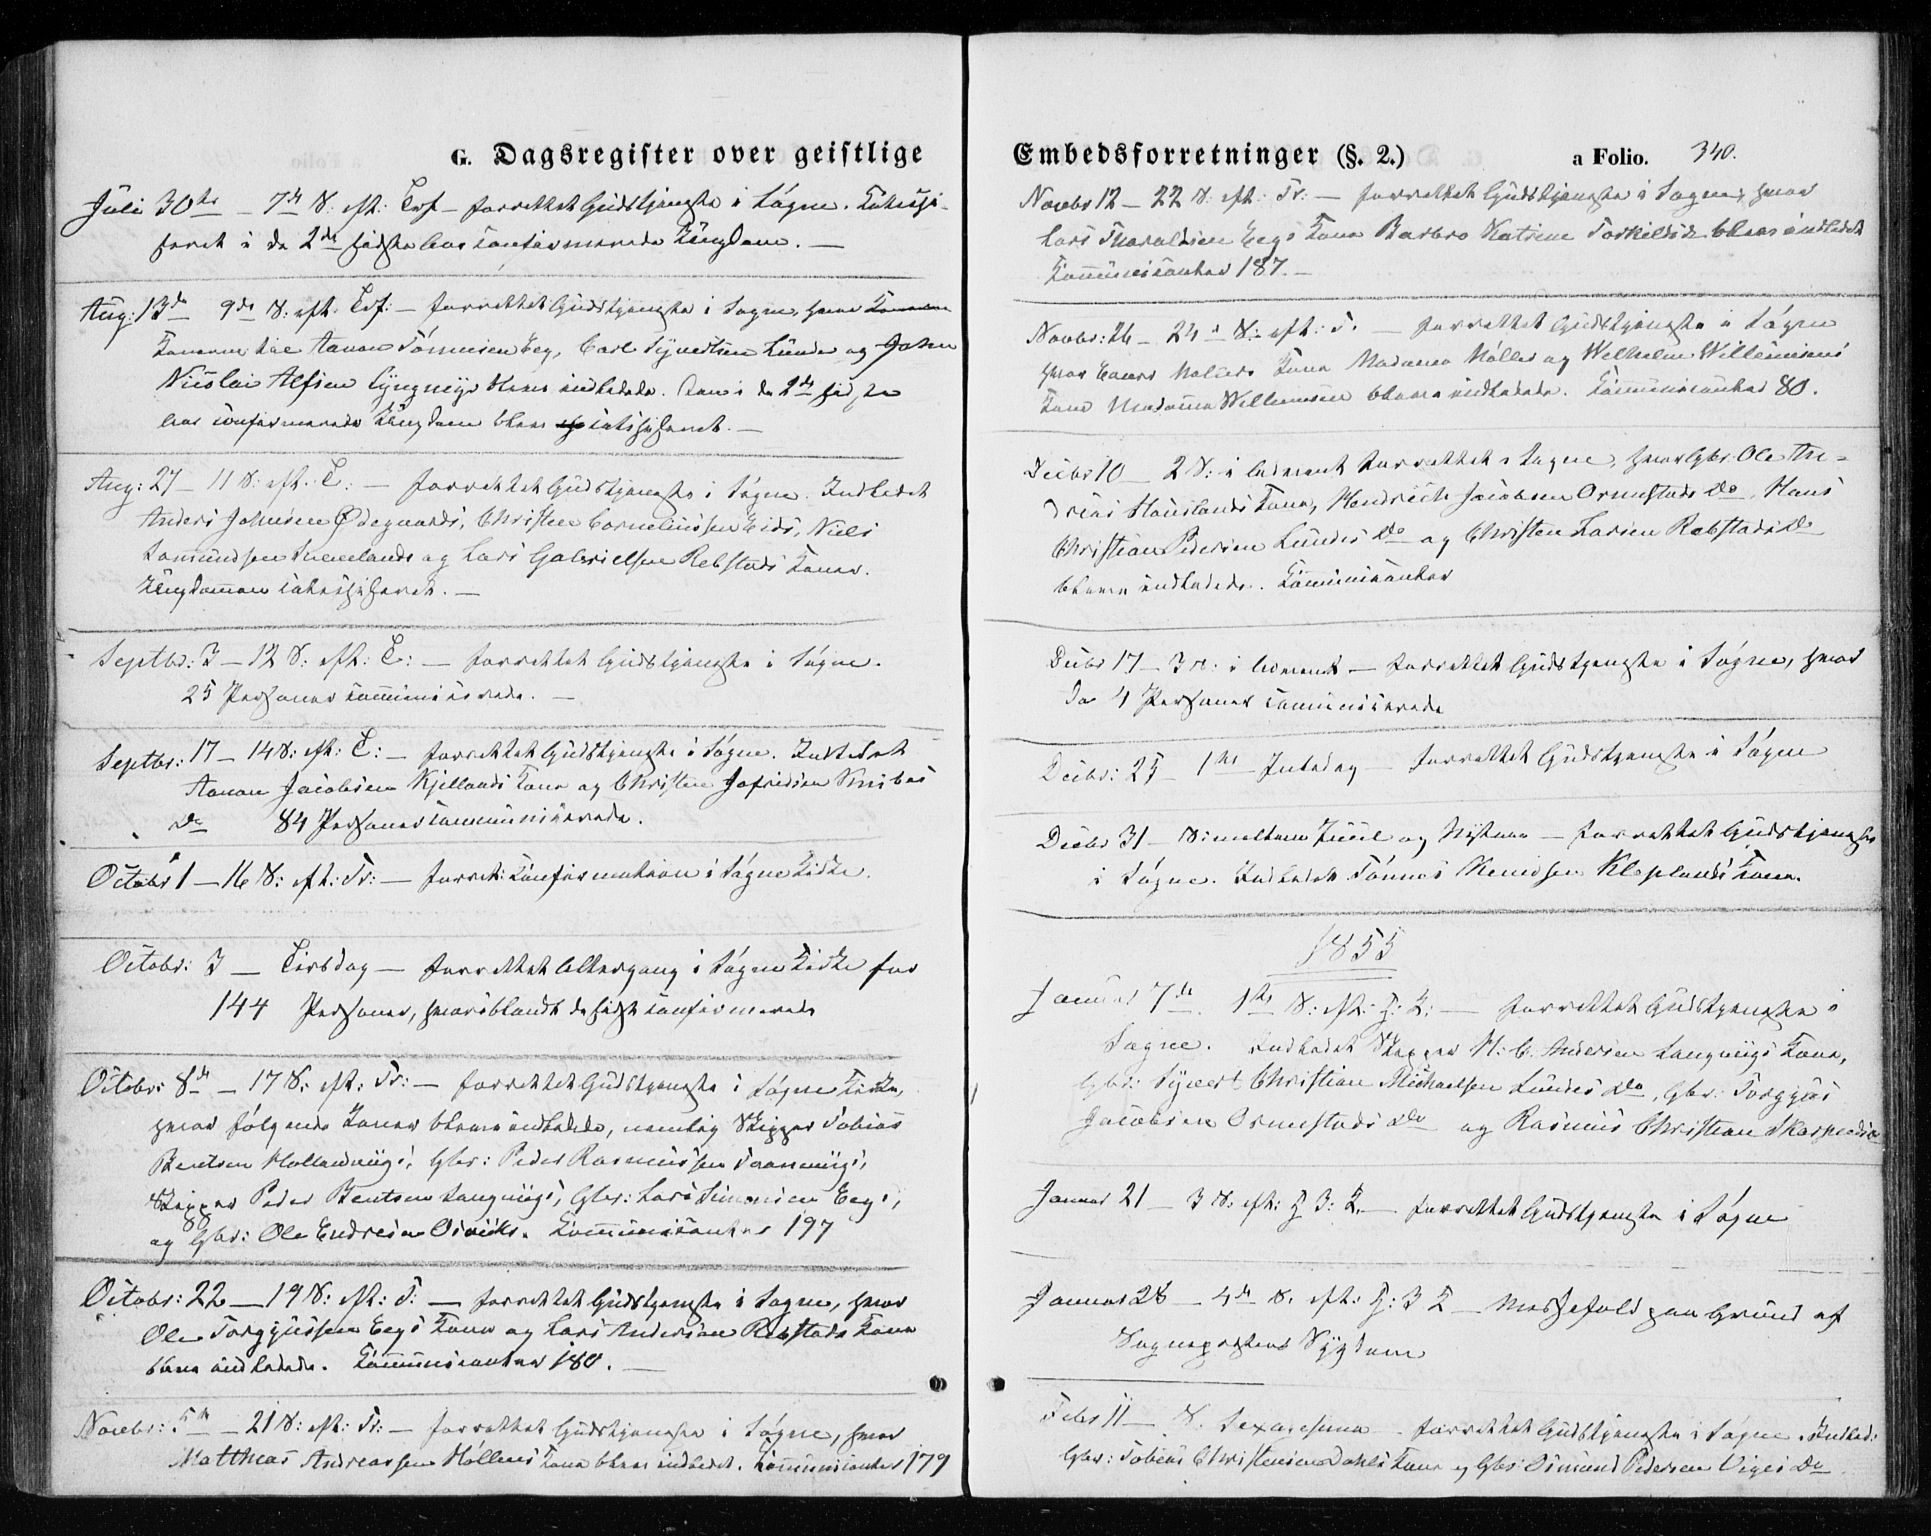 G. Dagsregister over geistlige
Juli 30te – 7de S. eft: Trf – forrettet Gudstjeneste i Søgne. Katechi-
seret i de 2de sidste Aar confirmerede Ungdom. –
Aug: 13de 9de S: eft. Trf: – forrettet Gudstjeneste i Søgne, hvor
Konerne til Aanon Tønnesen Eeg, Carl Syvertsen Lunde og John
Nicolai Alfsen Lyngmyr bleve indledede. Den i de 2de sidste
Aar confirmerede Ungdom blev catechiseret. –
Aug: 27 – 11 S: eft. T: – forrettet Gudstjeneste i Søgne. Indledet
Anders Johnsen Ødegaards, Christen Corneliussen Eids, Niels
Lomundsen og Lars Gabrielsen Rebstads Koner.
Ungdommen catechiseret. –
Septbr: 3 – 12 S. eft: T: – forrettet Gudstjeneste i Søgne.
25 Personer communicerede. –
Septbr: 17 – 14 S: eft: T: – forrettet Gudstjeneste i Søgne. Indledet
Aanon Jacobsen Kjellands Kone og Christen Knibes
Do 84 Personer communicerede.
Octobr 1 – 16 S: eft: Tr: – forret: Confirmation i Søgne Kirke.
Octobr: 3 – Tirsdag – forrettet Altergang i Søgne Kirke for
144 Personer, hvoriblandt de sidst confirmerede
Octobr: 8de – 17 S: eft: Tr: – forrettet Gudstjeneste i Søgne Kirke,
hvor følgende Koner bleve indledede, nemlig Skipper Tobias
Bentsen Gbr: Peder Rasmussen
Skipper Peder Bentsen Langmyrs, Gbr: Lars Simonsen Eegs,
og Gbr: Ole Endresen Osviks. Communicanter 197
Octobr: 22 – 19 S: eft: T: – forrettet Gudstjeneste i Søgne, hvor
Ole Torgjussen Eegs Kone og Lars Andersen Rebstads Kone
bleve indledede. Communicanter 180. –
Novbr: 5te – 21 S: eft: Tr: – forrettet Gudstjeneste i Søgne, hvor
Matthias Andreassen Høllens Kone blev indledet. Communicanter 179
Embedsforretninger (§. 2.) a Folio. 340.
Novbr 12 – 22 S: eft: Tr: – forrettet Gudstjeneste i Søgne, hvor
Lars Tharaldsen Eegs Kone Barbro Katrine blev indledet
Communicanter 187. –
Novbr: 26 – 24 S: eft: T. – forrettet Gudstjeneste i Søgne
hvor Møllers Kone Madame Møller og Wilhelm Willumsens
Kone Madame Willumsen bleve indledede. Communicanter 80.
Decbr 10 – 2 S: i Advent forrettet i Søgne, hvor Gbr. Ole An-
dreas Kone, Hendrich Jacobsen Ormestads Do, Hans
Christian Pedersen Lundes Do og Christen Larsen Rebstads Do
bleve indledede. Communicanter
Decbr 17 – 3 S. i Advent – forrettet Gudstjeneste i Søgne, hvor
da 4 Personer communicerede
Decbr: 25 – 1ste Juledag – forrettet Gudstjeneste i Søgne
Decbr 31 – S: mellem Juul og Nytaar – forrettet Gudstjeneste
i Søgne. Indledet Tønnes Kleplands Kone.
1855
Januar 7de 1ste S: eft: H: 3 K: – forrettet Gudstjeneste i
Søgne. Indledet Skipper N: C. Andersen Langmyrs Kone,
Gbr: Syvert Christian Michaelsen Lundes Do, Gbr: Torgjus
Jacobsen Ormestads Do og Rasmus Christian
Januar 21 – 3 S. eft: H 3: K. – forrettet Gudstjeneste i Søgne
Januar 28 – 4de S. eft: H: 3 K – Messefald paa Grund af
Sognepræstens Sygdom
Febr 11 – S. Sexagesima – forrettet Gudstjeneste i Søgne. Indled:
Gbr: Tobias Christensen Dahls Kone og Gbr: Osmund Pedersen Viges Do